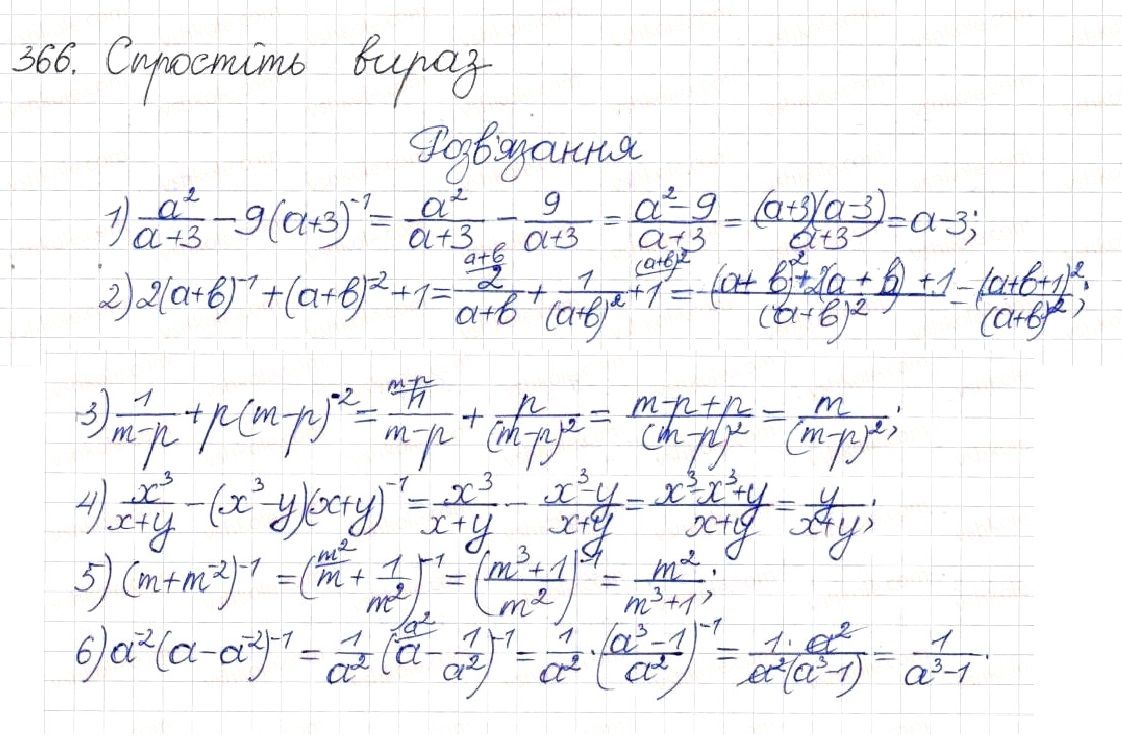 366. Спростіть вираз
Розв'язання
1) a²/(a+3) − 9(a+3)⁻¹ = a²/(a+3) − 9/(a+3) = (a²−9)/(a+3) = (a+3)(a−3)/(a+3) = a−3;
2) 2(a+b)⁻¹ + (a+b)⁻² + 1 = ᵃ⁺ᵇ⁄ 2/(a+b) + 1/(a+b)² + ⁽ᵃ⁺ᵇ⁾²⁄ 1 = ((a+b)²+2(a+b)+1)/(a+b)² = (a+b+1)²/(a+b)²;
3) 1/(m−p) + p(m−p)⁻² = ᵐ⁻ᵖ⁄ 1/(m−p) + p/(m−p)² = (m−p+p)/(m−p)² = m/(m−p)²;
4) x³/(x+y) − (x³−y)(x+y)⁻¹ = x³/(x+y) − (x³−y)/(x+y) = (x³−x³+y)/(x+y) = y/(x+y);
5) (m+m⁻²)⁻¹ = (ᵐ²⁄ m + 1/m²)⁻¹ = ((m³+1)/m²)⁻¹ = m²/(m³+1);
6) a⁻²(a−a⁻²)⁻¹ = 1/a² (ᵃ²⁄ a − 1/a²)⁻¹ = 1/a² · ((a³−1)/a²)⁻¹ = (1·a²)/(a²(a³−1)) = 1/(a³−1).